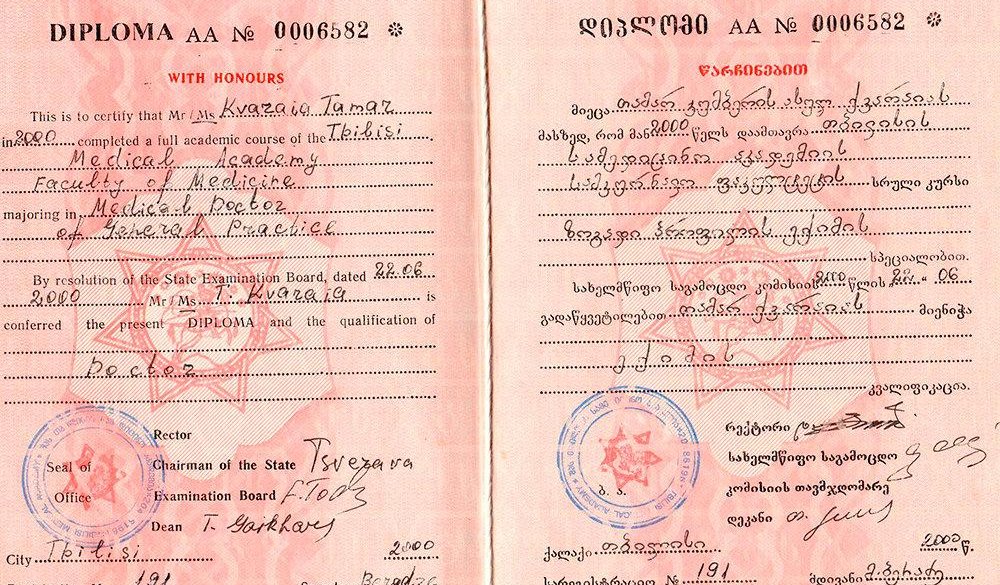 DIPLOMA AA № 0006582 *
WITH HONOURS
This is to certify that Mr / Ms Kvaraia Tamar
in 2000 completed a full academic course of the Tbilisi
Medical Academy
Faculty of Medicine
majoring in Medical Doctor
of General Practice
By resolution of the State Examination Board, dated 22.06
2000 Mr / Ms T. Kvaraia is
conferred the present DIPLOMA and the qualification of
Doctor
Rector
Seal of
Office
Chairman of the State
Examination Board
Dean
City Tbilisi 2000
191
დიპლომი AA № 0006582 *
წარჩინებით
მიეცა თამარ ჯუმბერის ასულ ქვარაიას
მასზედ, რომ მან 2000 წელს დაამთავრა თბილისის
სამედიცინო აკადემიის
სამკურნალო ფაკულტეტის სრული კურსი
ზოგადი პროფილის ექიმის
სპეციალობით.
სახელმწიფო საგამოცდო კომისიის 2000 წლის 22 " 06
გადაწყვეტილებით თამარ ქვარაიას მიენიჭა
ექიმის
კვალიფიკაცია.
რექტორი
სახელმწიფო საგამოცდო
ბ. ა.
კომისიის თავმჯდომარე
დეკანი
ქალაქი თბილისი 2000 წ.
სარეგისტრაციო № 191 მდივანი